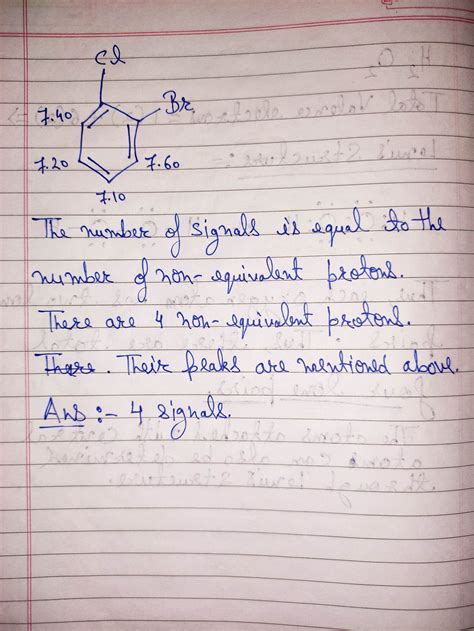 Cl
Br
7.40
7.20
7.60
7.10
The number of signals is equal to the
number of non-equivalent protons.
There are 4 non-equivalent protons.
There. Their peaks are mentioned above.
Ans :- 4 signals.